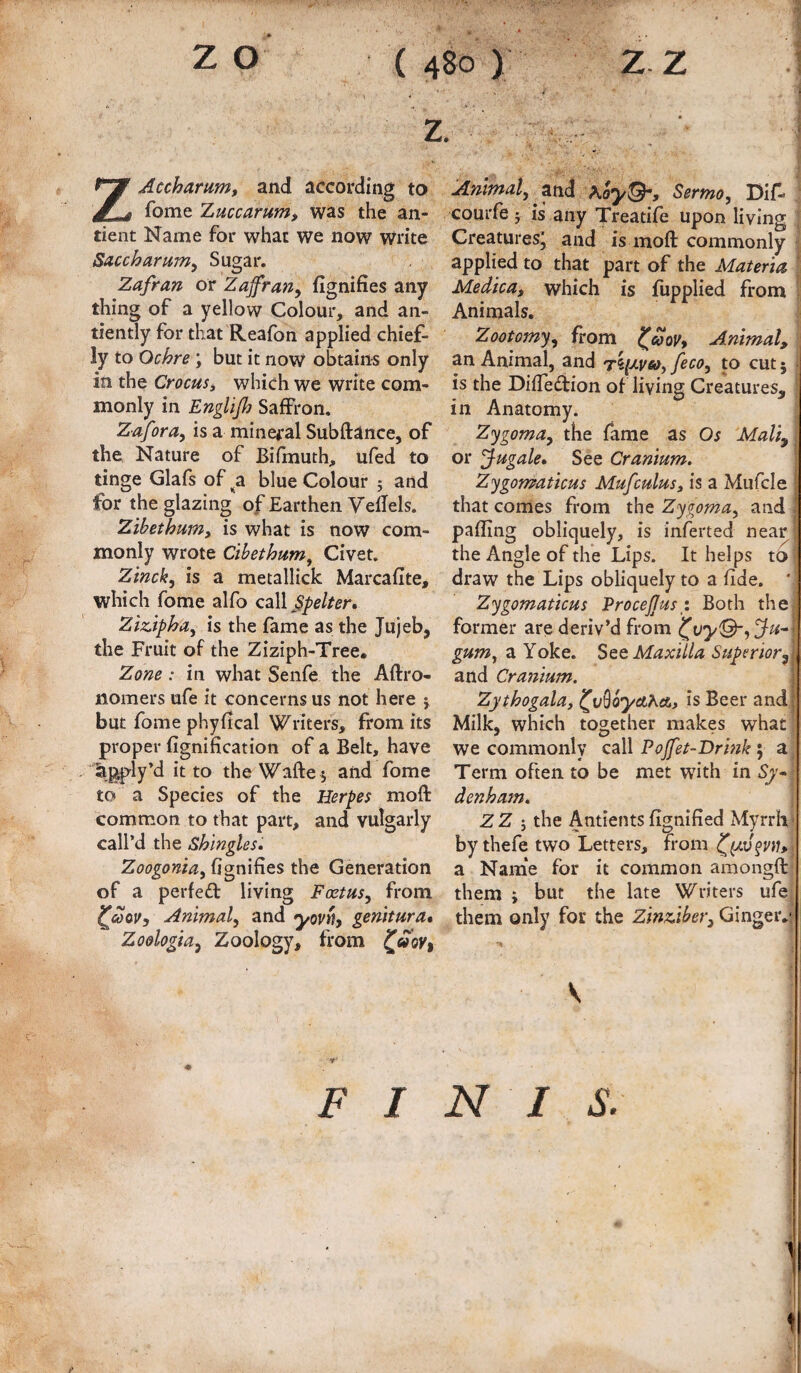 Z O ( 480 ) Z Z
Z.
ZAccharum, and according to
ſome Zuccarum, was the an-
tient Name for what we now write
Saccharum, Sugar.
Zafran or Zaffran, ſignifies any
thing of a yellow Colour, and an-
tiently for that Reaſon applied chief-
ly to Ochre ; but it now obtains only
in the Crocus, which we write com-
monly in Engliſh Saffron.
Zafora, is a mineral Subſtance, of
the Nature of Biſmuth, uſed to
tinge Glaſs of a blue Colour ; and
for the glazing of Earthen Veſſels.
Zibethum, is what is now com-
monly wrote Cibethum, Civet.
Zinck, is a metallick Marcaſite,
which ſome alſo call Spelter.
Zizipha, is the ſame as the Jujeb,
the Fruit of the Ziziph-Tree.
Zone : in what Senſe the Aſtro-
nomers uſe it concerns us not here ;
but ſome phyſical Writers, from its
proper ſignification of a Belt, have
apply'd it to the Waſte ; and ſome
to a Species of the Herpes moſt
common to that part, and vulgarly
call'd the Shingles.
Zoogonia, ſignifies the Generation
of a perfect living Fœtus, from
ζῶον, Animal, and γονὴ, genitura.
Zoologia, Zoology, from ζῶον,
Animal, and λόγ@, Sermo, Diſ-
courſe ; is any Treatiſe upon living
Creatures; and is moſt commonly
applied to that part of the Materia
Medica, which is ſupplied from
Animals.
Zootomy, from ζῶον, Animal,
an Animal, and τέμνω, ſeco, to cut ;
is the Diſſection of living Creatures,
in Anatomy.
Zygoma, the ſame as Os Mali,
or Jugale. See Cranium.
Zygomaticus Muſculus, is a Muſcle
that comes from the Zygoma, and
paſſing obliquely, is inſerted near
the Angle of the Lips. It helps to
draw the Lips obliquely to a ſide.
Zygomaticus Proceſſus : Both the
former are deriv'd from ζυγ@, Ju-
gum, a Yoke. See Maxilla Superior,
and Cranium.
Zythogala, ζυθόγαλα, is Beer and
Milk, which together makes what
we commonly call Poſſet-Drink ; a
Term often to be met with in Sy-
denham.
Z Z ; the Antients ſignified Myrrh
by theſe two Letters, from ζμύρνη,
a Name for it common amongſt
them ; but the late Writers uſe
them only for the Zinziber, Ginger.
F I N I S.